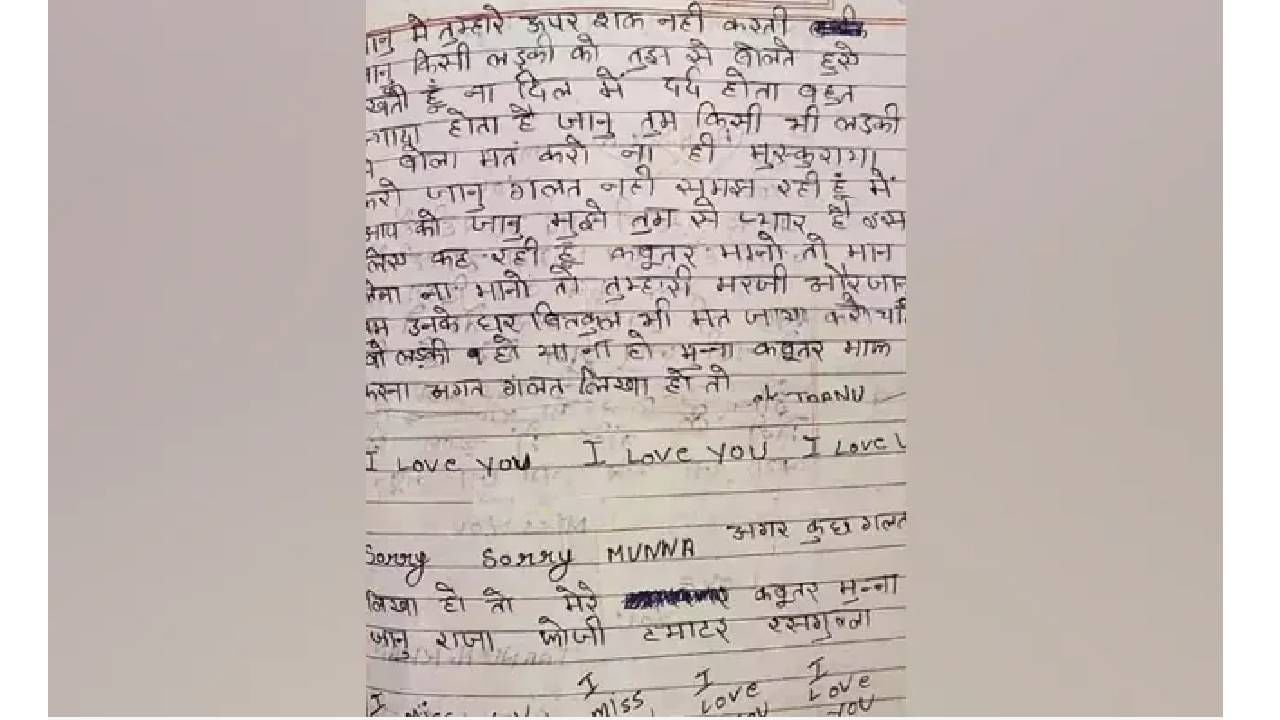 जानु मे तुम्हारे ऊपर शक नही करती
जानु किसी लड़की को तुझ से बोलते हुऐ
खती हूं ना दिल में दर्द होता बहुत
होता है जानु तुम किसी भी लड़की
बोला मत करो ना ही मुस्कुराया
करो जानु गलत नही समझ रही हूं में
आप को जानु मुझे तुम से प्यार है इस
लिए कह रही हूं कबूतर मानो तो मान
लेना ना मानो तो तुम्हारी मरजी और जान
उनके घर बिलकुल भी मत जाया करो
वो लड़की हो या ना हो मुन्ना कबूतर माफ
करना अगर गलत लिखा हो तो
ok JAANU
I Love you I Love you I Love
अगर कुछ गलत
Sorry Sorry MUNNA
लिखा हो तो मेरे कबूतर मुन्ना
जानु राजा फोजी टमाटर रसगुल्ला
I I I
I Miss Love Love
You